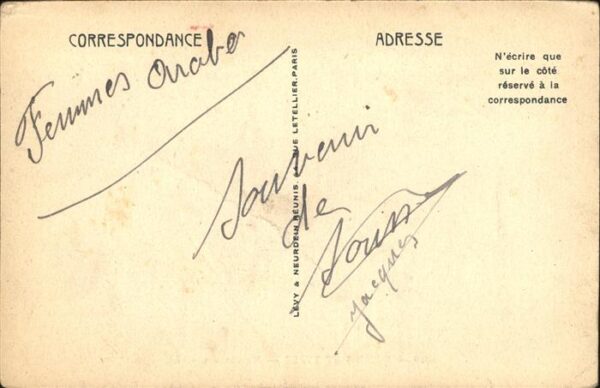 CORRESPONDANCE
ADRESSE
N'écrire que
sur le côté
réservé à la
correspondance
Femmes arabes
Souvenir
de
Jacques
LÉVY & NEURDEIN RÉUNIS, RUE LETELLIER, PARIS